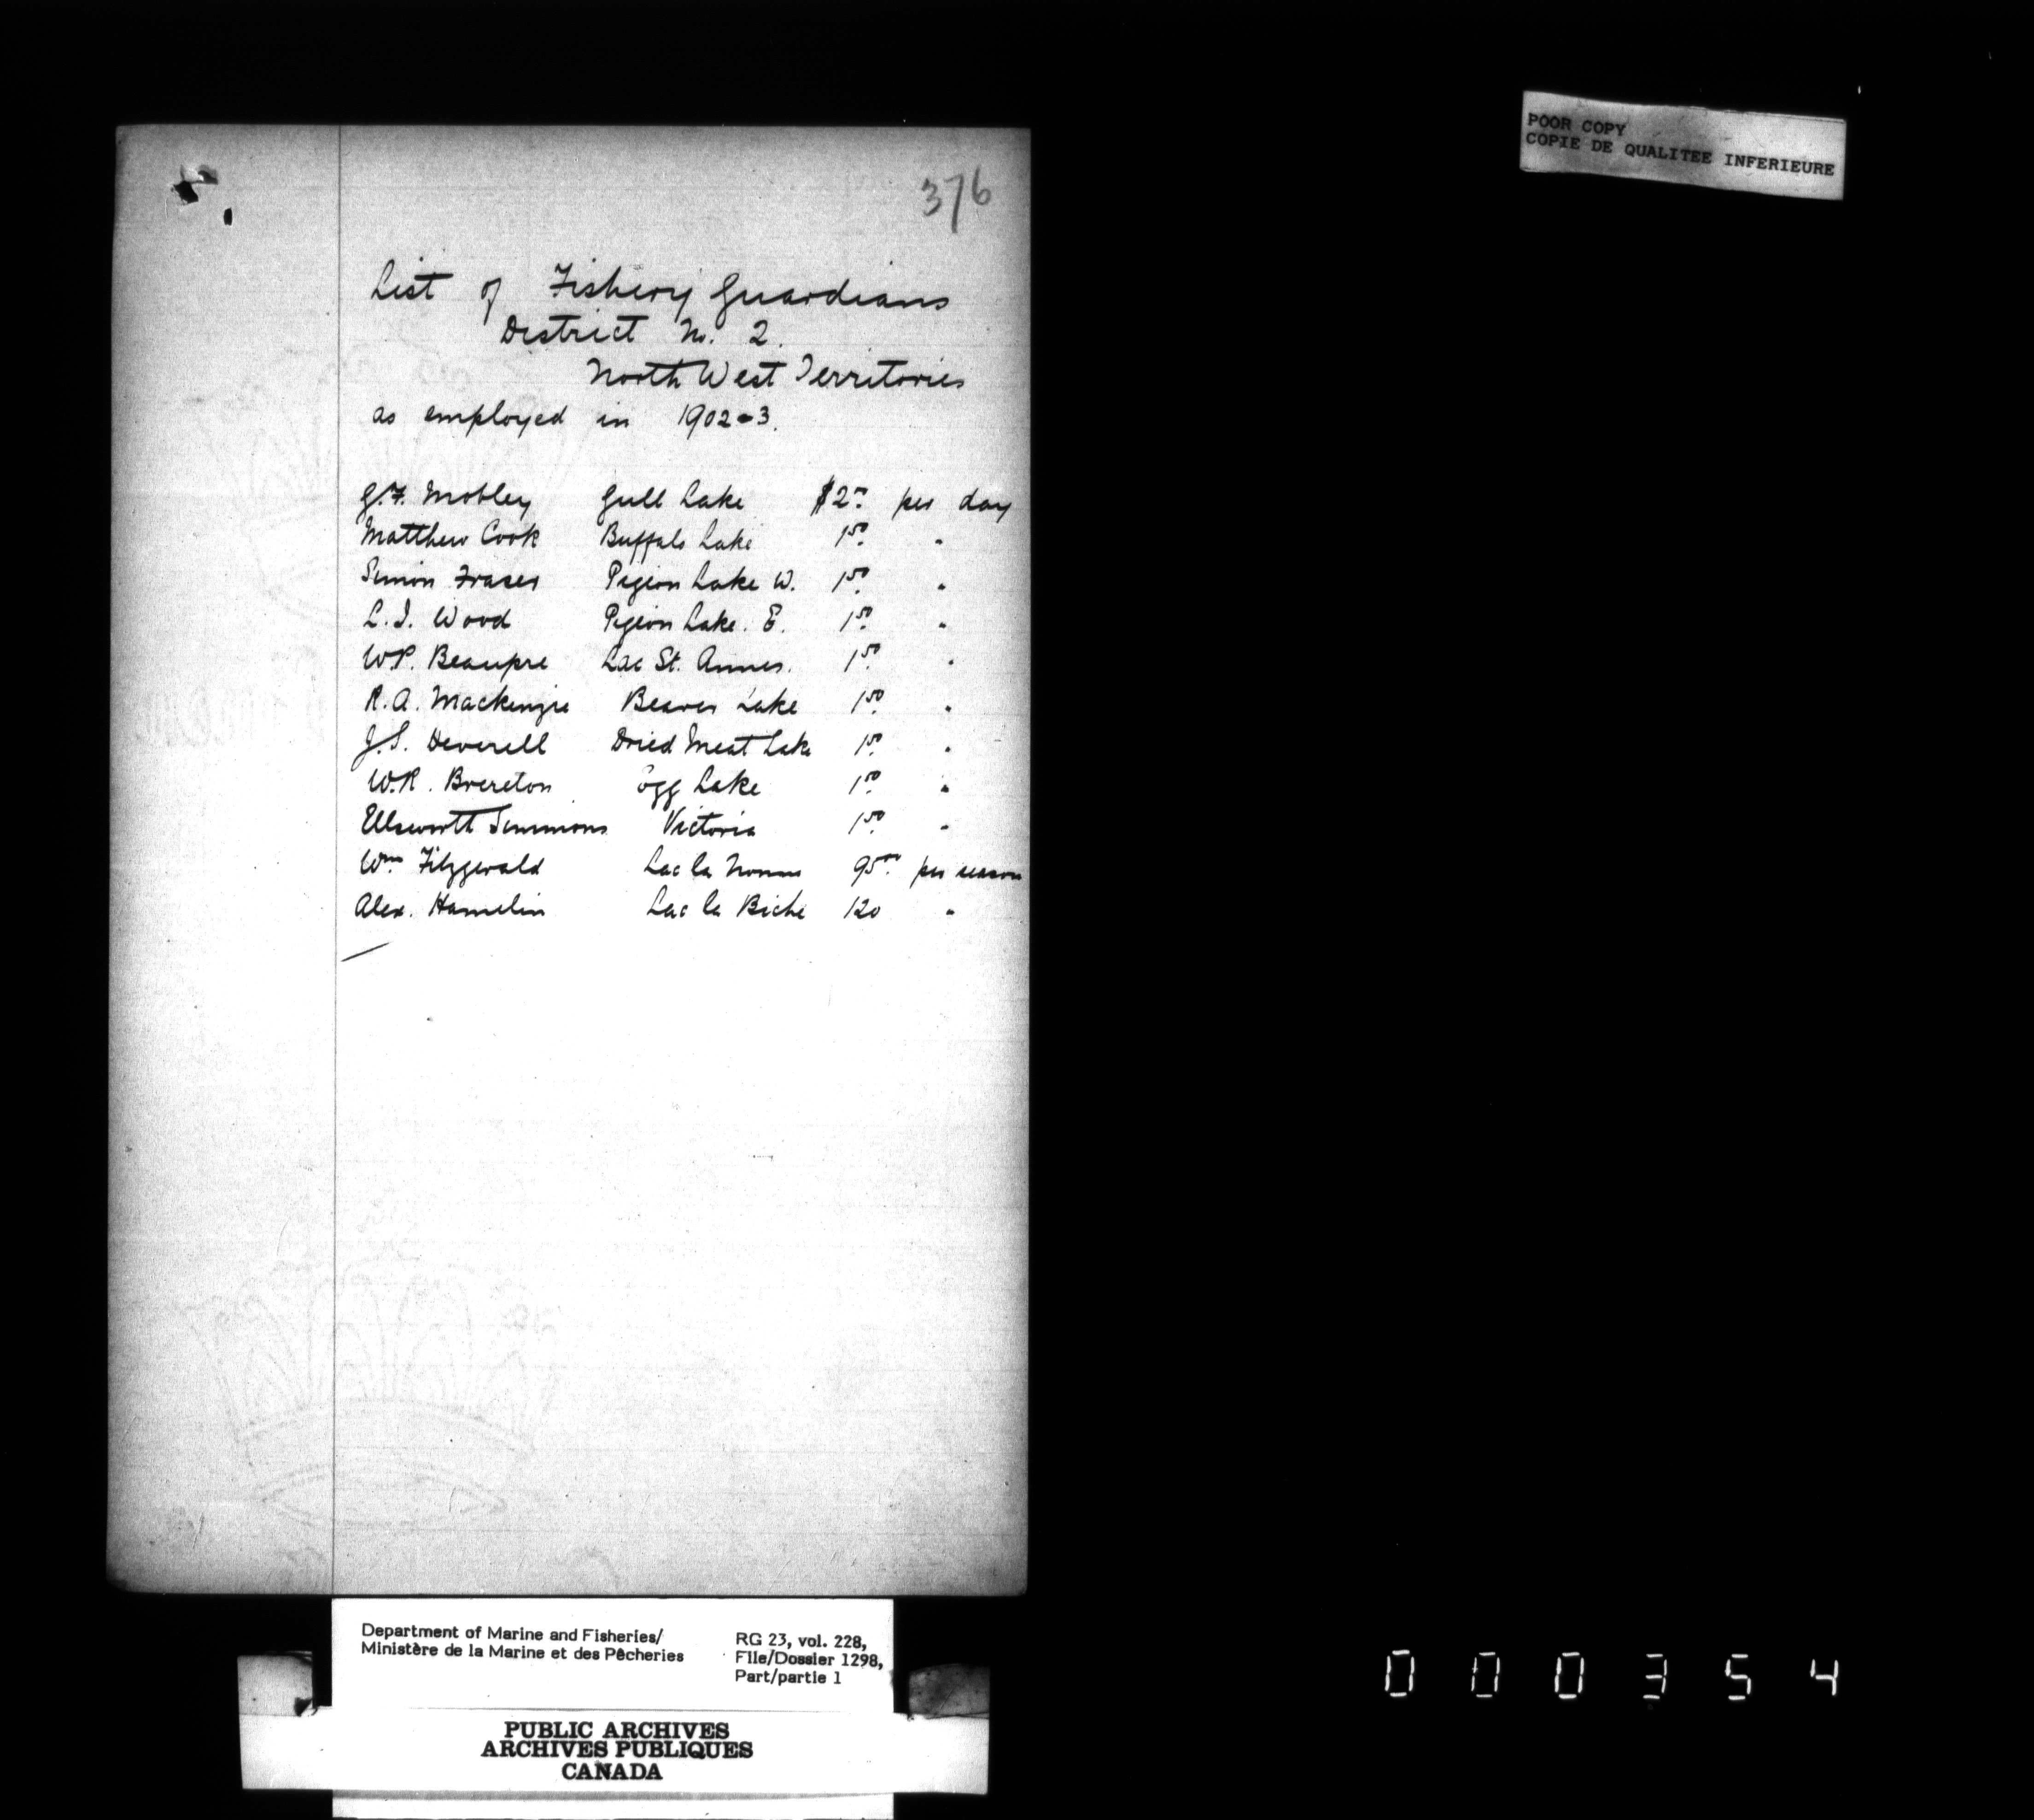 POOR COPY
COPIE DE QUALITEE INFERIEURE
376
List of Fishery Guardians
District No. 2.
North West Territories
as employed in 1902-3.
G.F. Mobley Gull Lake $2.00 per day
Matthew Cook Buffalo Lake 1.50 "
Simon Fraser Pigeon Lake W. 1.50 "
L.I. Wood Pigeon Lake. E. 1.50 "
W.P. Beaupre Lac St. Annes. 1.50 "
R.A. Mackenzie Beaver Lake 1.50 "
J.S. Deverell Dried Meat Lake 1.50 "
W.R. Brereton Egg Lake 1.50 "
Ellsworth Simmons Victoria 1.50 "
Wm Fitzgerald Lac la Nonne 95.00 per season
Alex. Hamelin Lac la Biche 120 "
Department of Marine and Fisheries/
Ministère de la Marine et des Pêcheries
RG 23, vol. 228,
File/Dossier 1298,
Part/partie 1
PUBLIC ARCHIVES
ARCHIVES PUBLIQUES
CANADA
000354